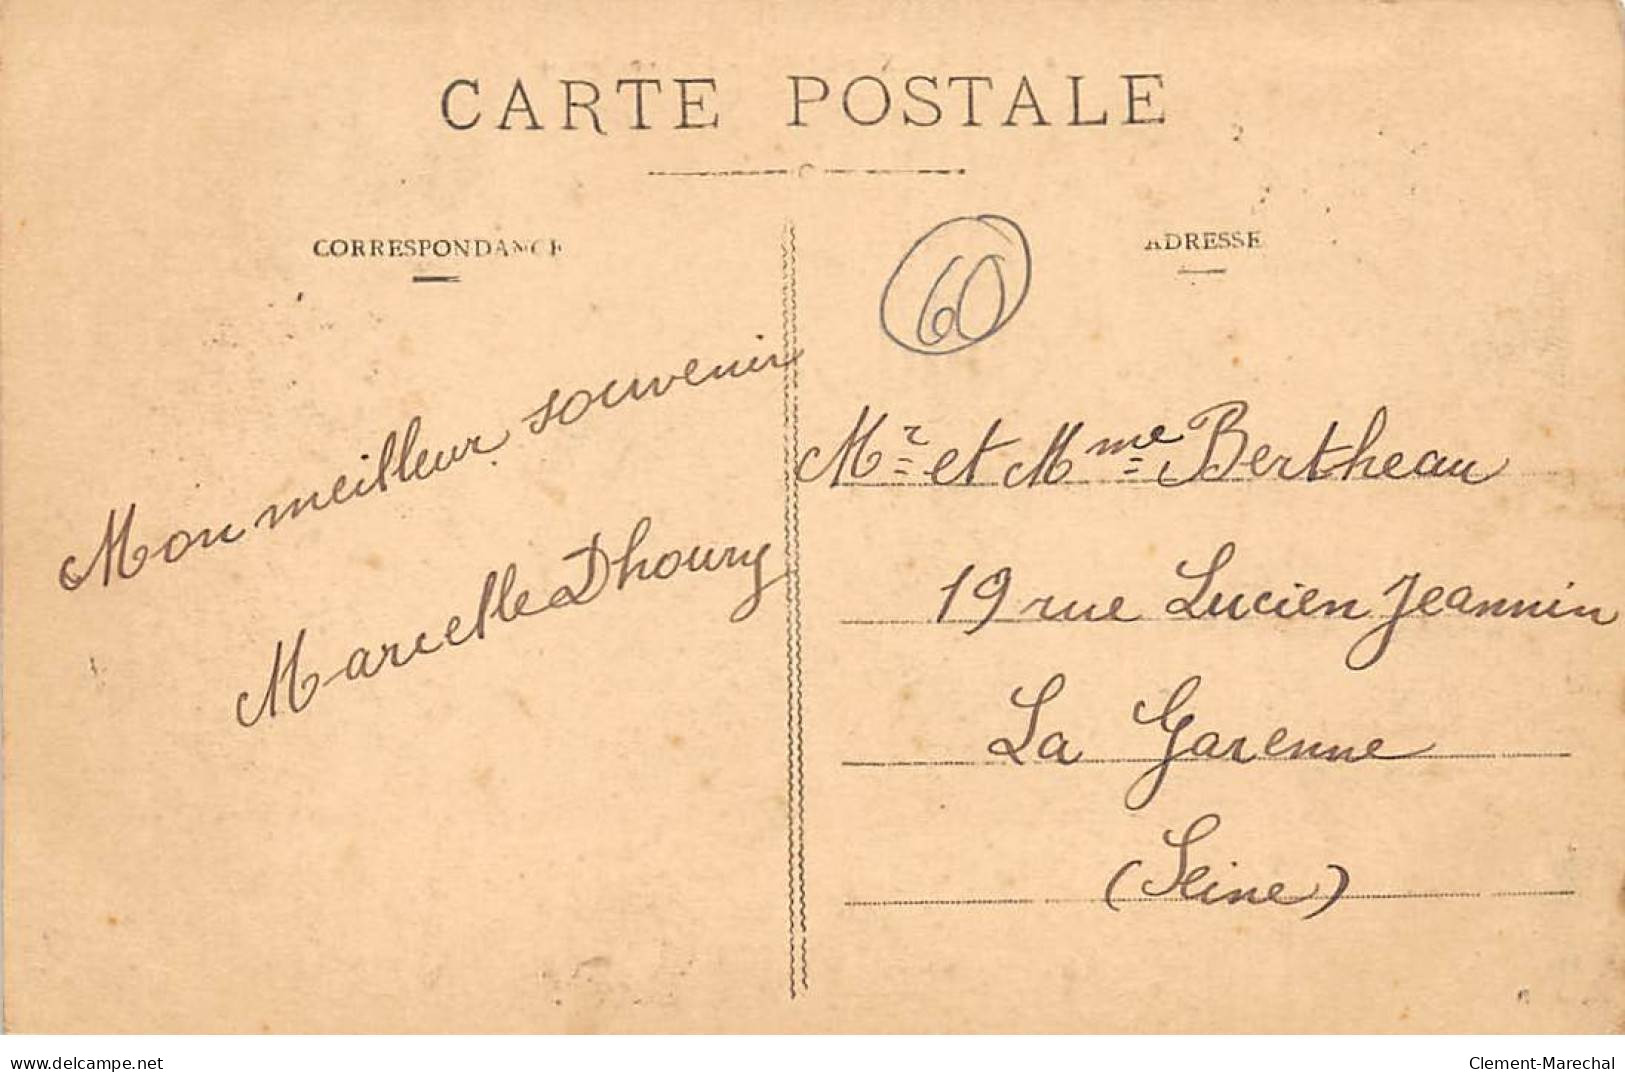 CARTE POSTALE
CORRESPONDANCE
ADRESSE
60
Mon meilleur souvenir
Marcelle Dhoury
Mr et Mme Bertheau
19 rue Lucien Jeannin
La Garenne
(Seine)
www.delcampe.net
Clement-Marechal